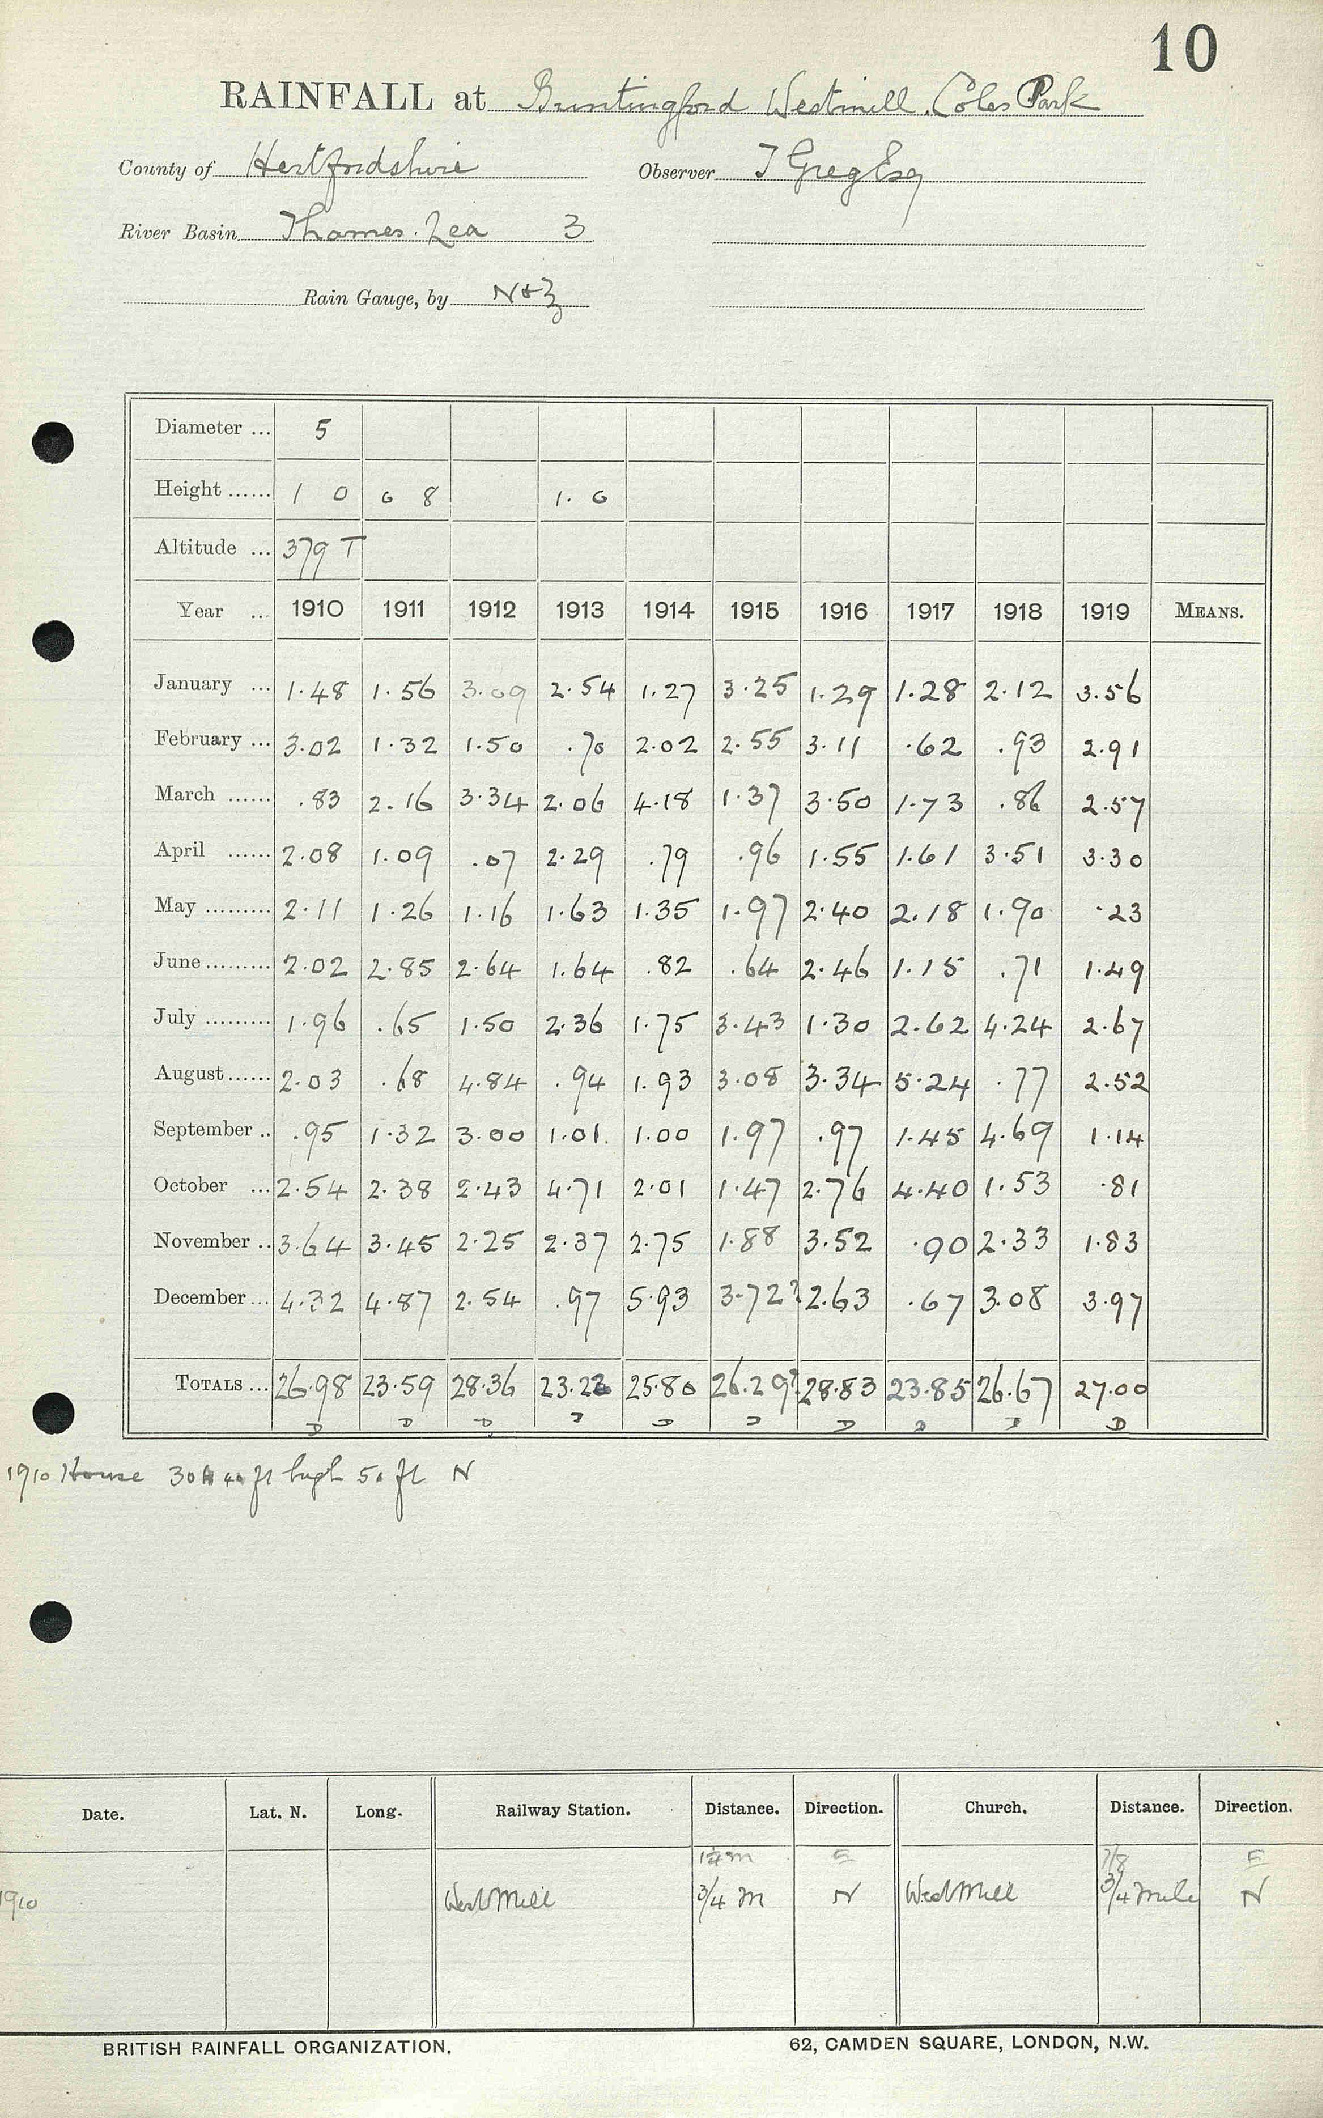 10
RAINFALL at Buntingford Westmill. Coles Park
County of Hertfordshire Observer T Greg Esq
River Basin Thames. Lea 3
Rain Gauge, by N+Z
Diameter ... 5
Height ...... 1 0 0 8 1. 0
Altitude ... 379 T
Year ... 1910 1911 1912 1913 1914 1915 1916 1917 1918 1919 MEANS.
January ... 1.48 1.56 3.09 2.54 1.27 3.25 1.29 1.28 2.12 3.56
February ... 3.02 1.32 1.50 .70 2.02 2.55 3.11 .62 .93 2.91
March ...... .83 2.16 3.34 2.06 4.18 1.37 3.50 1.73 .86 2.57
April ...... 2.08 1.09 .07 2.29 .79 .96 1.55 1.61 3.51 3.30
May ......... 2.11 1.26 1.16 1.63 1.35 1.97 2.40 2.18 1.90 .23
June ......... 2.02 2.85 2.64 1.64 .82 .64 2.46 1.15 .71 1.49
July ......... 1.96 .65 1.50 2.36 1.75 3.43 1.30 2.62 4.24 2.67
August ...... 2.03 .68 4.84 .94 1.93 3.08 3.34 5.24 .77 2.52
September .. .95 1.32 3.00 1.01 1.00 1.97 .97 1.45 4.69 1.14
October ... 2.54 2.38 2.43 4.71 2.01 1.47 2.76 4.40 1.53 .81
November .. 3.64 3.45 2.25 2.37 2.75 1.88 3.52 .90 2.33 1.83
December ... 4.32 4.87 2.54 .97 5.93 3.72? 2.63 .67 3.08 3.97
TOTALS ... 26.98 23.59 28.36 23.22 25.80 26.29? 28.83 23.85 26.67 27.00
D D D D D D D D D D
1910 House 30 ft high 50 ft N
Date. Lat. N. Long. Railway Station. Distance. Direction. Church. Distance. Direction.
1¼ m E 7/8 E
1910 West Mill 3/4 m N West Mill 3/4 mile N
BRITISH RAINFALL ORGANIZATION. 62, CAMDEN SQUARE, LONDON, N.W.